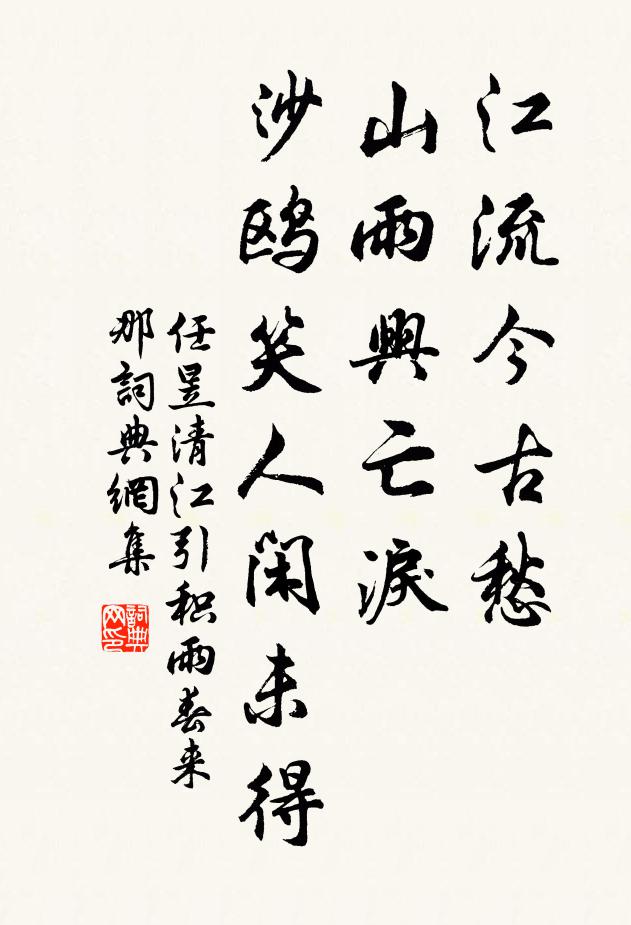 江流今古愁
山雨興亡淚
沙鸥笑人閑未得
任昱清江引积雨春来
那詞典網集
詞典
网印